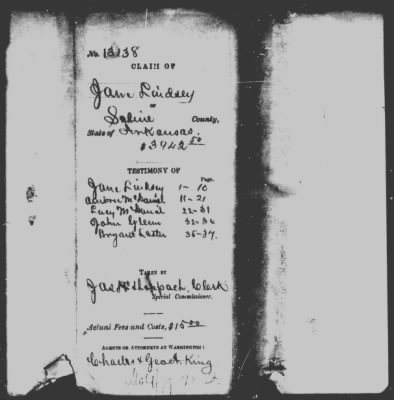 No. 13138
CLAIM OF
Jane Lindsey
OF
Saline County,
State of Arkansas.
$3942.50
TESTIMONY OF
Page.
Jane Lindsey 1-10
Andrew McDaniel 11-21
Lucy McDaniel 22-31
John Glenn 32-34
Bryant Laster 35-37.
TAKEN BY
Jas H Shoppach, Clerk
Special Commissioner.
Actual Fees and Costs, $15.00
AGENTS OR ATTORNEYS AT WASHINGTON:
Charles & Geo. King